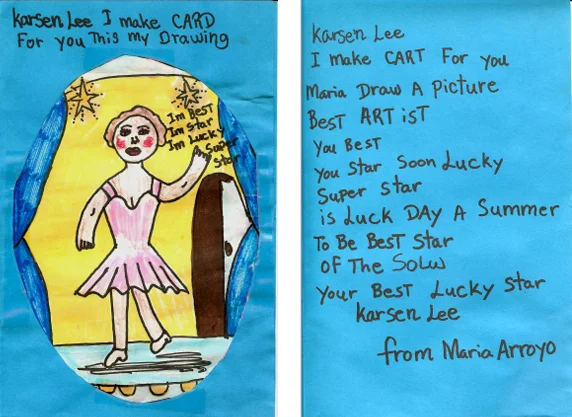 karsen Lee I make CARD
For you This my Drawing
Im BEST
Im Star
Im Lucky
Im Super
Star
karsen Lee
I make CART For you
Maria Draw A Picture
BEST ARTisT
You BEST
You Star Soon Lucky
Super Star
is Luck DAY A Summer
To Be BesT Star
OF The SoLW
Your BesT Lucky Star
karsen Lee
from Maria Arroyo